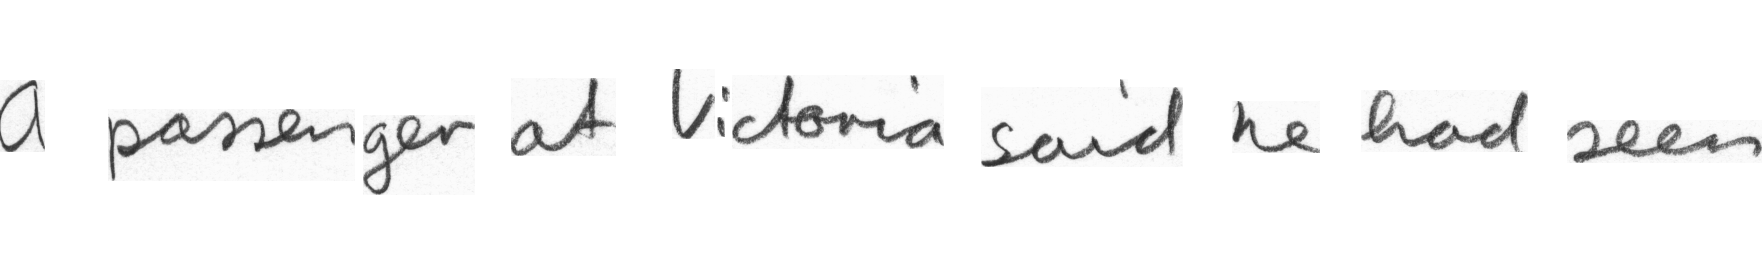 A passenger at Victoria said he had seen